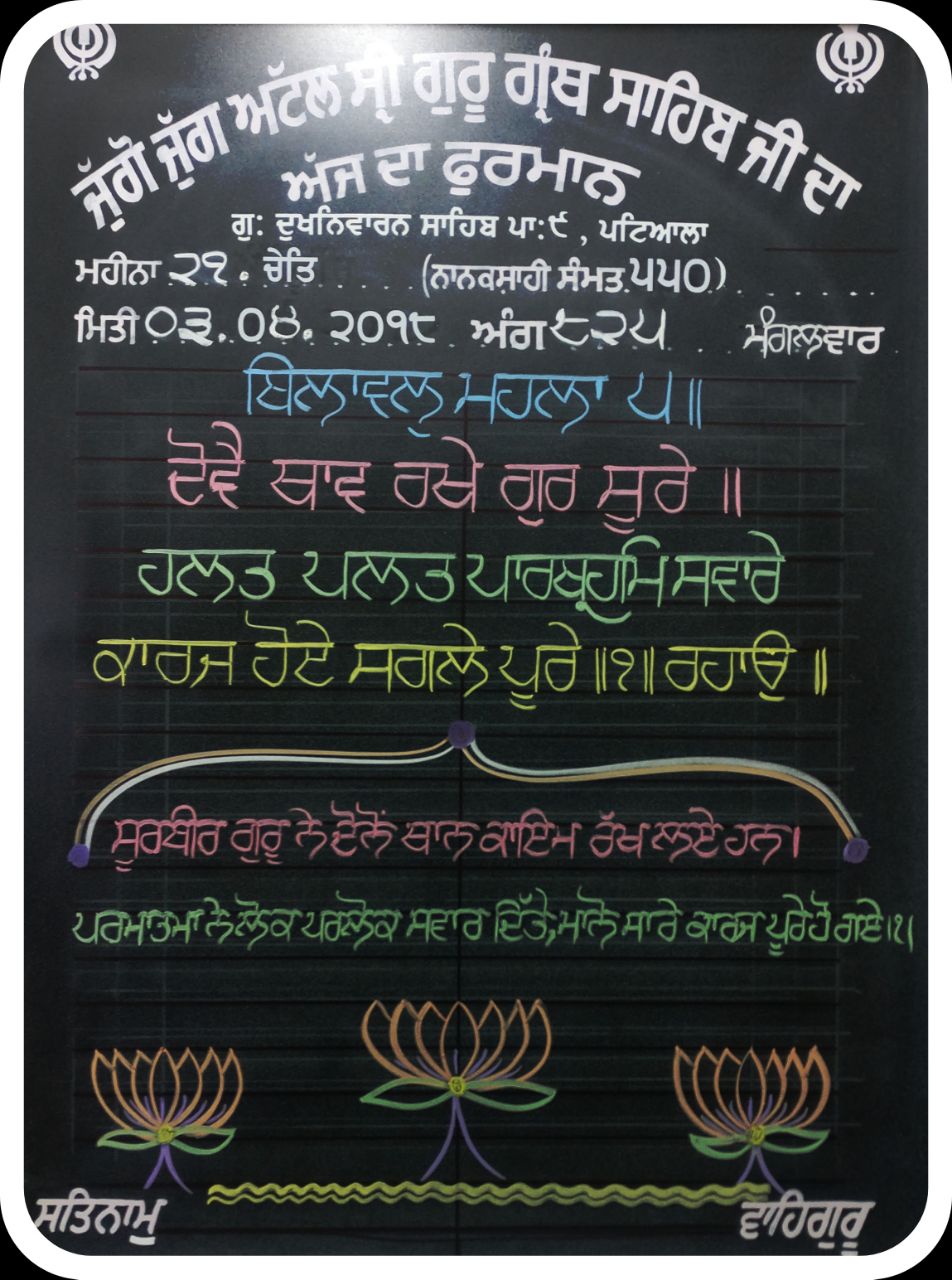 ਜੁੱਗੋ ਜੁੱਗ ਅਟੱਲ ਸ੍ਰੀ ਗੁਰੂ ਗ੍ਰੰਥ ਸਾਹਿਬ ਜੀ ਦਾ
ਅੱਜ ਦਾ ਫੁਰਮਾਨ
ਗੁ: ਦੁਖਨਿਵਾਰਨ ਸਾਹਿਬ ਪਾ:੯ , ਪਟਿਆਲਾ
ਮਹੀਨਾ ੨੧. ਚੇਤਿ (ਨਾਨਕਸਾਹੀ ਸੰਮਤ ੫੫੦)
ਮਿਤੀ ੦੩.੦੪.੨੦੧੮ ਅੰਗ ੮੨੫ ਮੰਗਲਵਾਰ
ਬਿਲਾਵਲੁ ਮਹਲਾ ੫॥
ਦੋਵੈ ਥਾਵ ਰਖੇ ਗੁਰ ਸੂਰੇ ॥
ਹਲਤ ਪਲਤ ਪਾਰਬ੍ਰਹਮਿ ਸਵਾਰੇ
ਕਾਰਜ ਹੋਏ ਸਗਲੇ ਪੂਰੇ ॥੧॥ ਰਹਾਉ ॥
ਸੂਰਬੀਰ ਗੁਰੂ ਨੇ ਦੋਨੋਂ ਥਾਨ ਕਾਇਮ ਰੱਖ ਲਏ ਹਨ।
ਪਰਮਾਤਮਾ ਨੇ ਲੋਕ ਪਰਲੋਕ ਸਵਾਰ ਦਿੱਤੇ, ਮਾਨੋ ਸਾਰੇ ਕਾਰਜ ਪੂਰੇ ਹੋ ਗਏ।੧।
ਸਤਿਨਾਮੁ ਵਾਹਿਗੁਰੂ